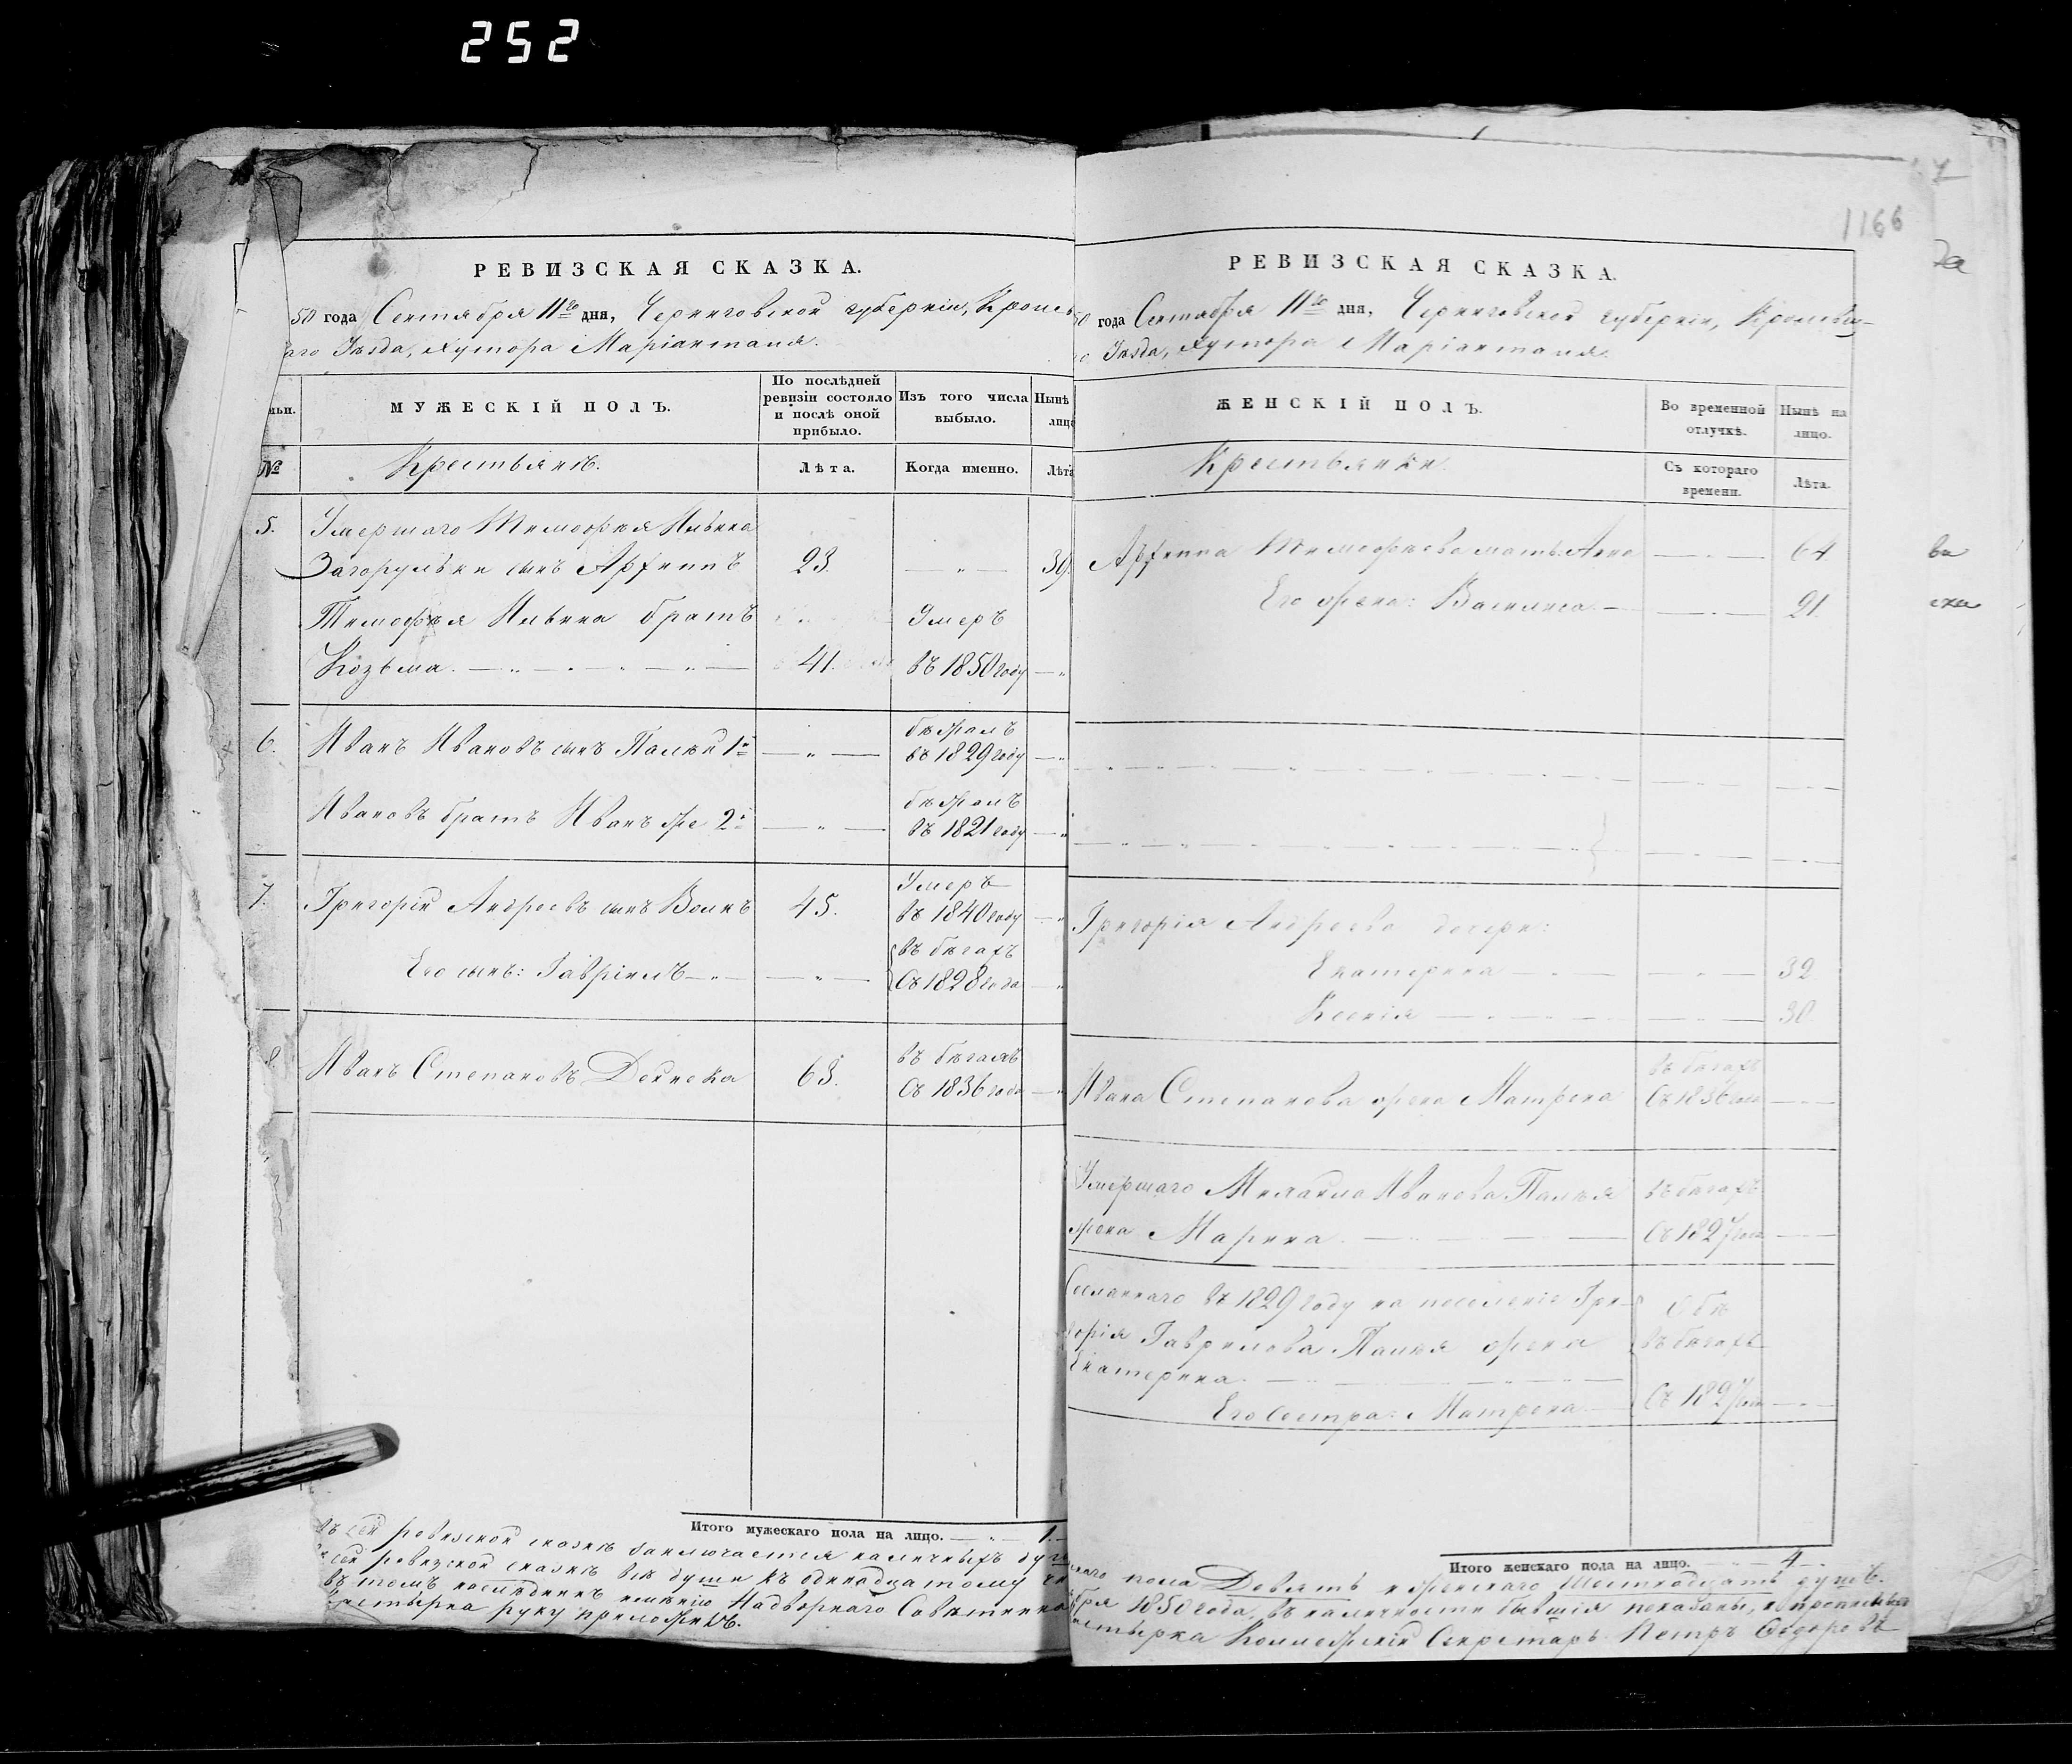 252
РЕВИЗСКАЯ СКАЗКА.
50 года Сентября 11го дня, Черниговской губернии, Кролев
аго Уѣзда, Хутора Маріанталя.
МУЖЕСКІЙ ПОЛЪ.
По послѣдней ревизіи состояло и послѣ оной прибыло.
Изъ того числа выбыло.
Нынѣ лицо
№
Крестьянѣ.
Лѣта.
Когда именно.
Лѣта
5. Умершаго Тимофѣя Ильина
Загорульки сынъ Архипъ 23. — " — 39.
Тимофѣя Ильина братъ Умеръ
Козьма. 41. въ 1850 году
6. Иванъ Ивановъ сынъ Палѣй 1й — " — бѣжалъ въ 1829 году
Ивановъ братъ Иванъ же 2й — " — бѣжалъ въ 1821 году
7. Григорій Андреевъ сынъ Волкъ 45. Умеръ въ 1840 году
Его сынъ: Гавріилъ — " — въ бѣгахъ Съ 1828 года
8. Иванъ Степановъ Дейнека 63. въ бѣгахъ Съ 1836 года
Итого мужескаго пола на лицо. — " — 1.
въ сей ревизской сказкѣ заключается наличныхъ душ
сей ревизской сказкѣ всѣ души къ одинадцатому
въ томъ имѣнію Надворнаго Совѣтника
руку приложилъ.
1166
7а
РЕВИЗСКАЯ СКАЗКА.
0 года Сентября 11го дня, Черниговской губерніи, Кролевец-
го Уѣзда, Хутора Маріанталя.
ЖЕНСКІЙ ПОЛЪ.
Во временной отлучкѣ.
Нынѣ на лицо.
Крестьянки.
Съ котораго времени.
Лѣта.
Архипа Тимофѣева мать: Анна — " — 64.
Его жена: Василиса — — " — 21.
Григорія Андреева дочери:
Екатерина — " — 32
Ксенія — " — 30
Ивана Степанова жена Матрена въ бѣгахъ Съ 1836 года
Умершаго Михаила Иванова Палѣя въ бѣгахъ
жена Марина Съ 1827 года
Сосланнаго въ 1829 году на поселеніе Гри-
горія Гаврилова Палѣя жена
Екатерина.
Обѣ въ бѣгахъ
Его Сестра: Матрена. Съ 1827 года
Итого женскаго пола на лицо. 4
каго пола Девять и женскаго Шестнадцать душъ.
бря 1850 года, въ наличности бывшія показаны, и прописныхъ
Коллежскій Секретарь Петръ Федоровъ